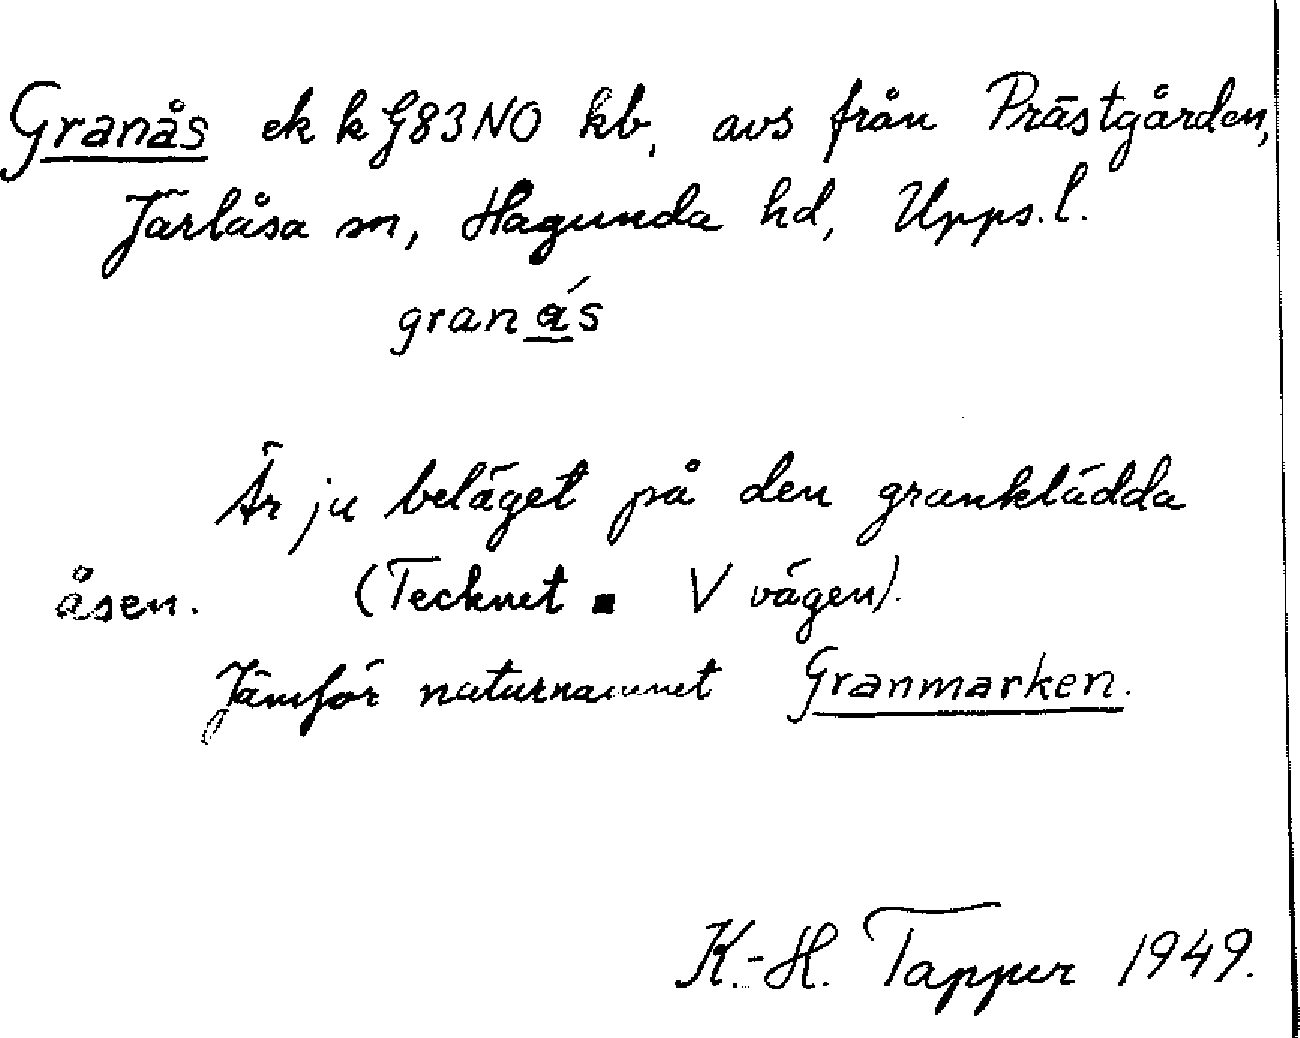 Granås ek k G83NO kb, avs från Prästgården,
Järlåsa sn, Hagunda hd, Upps.l.
granǻs
Är ju beläget på den granklädda
åsen. (Tecknet ▪ V vägen).
Jämför naturnamnet Granmarken.
K.-H. Tapper 1949.